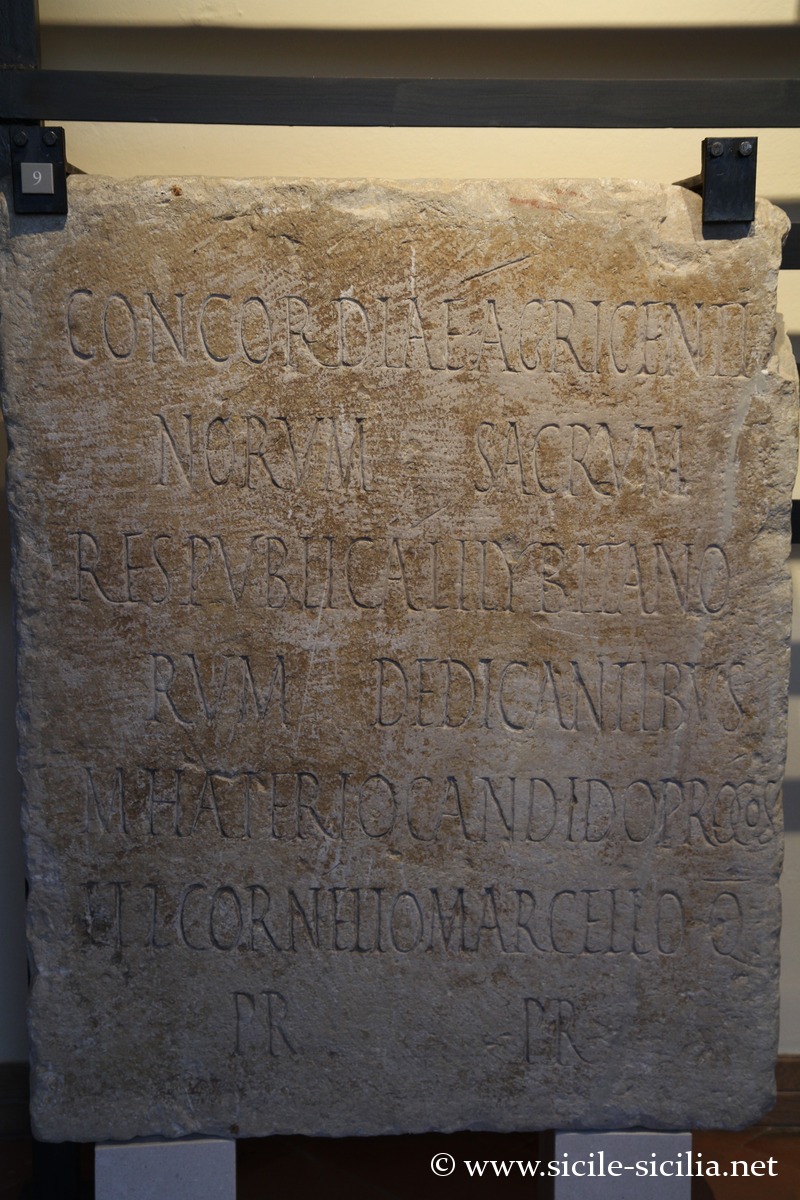 9
CONCORDIAE AGRIGENTI
NORVM SACRVM
RESPVBLICA LILYBITANO
RVM DEDICANTIBVS
M HATERIO CANDIDO PROCOS
ET L CORNELIO MARCELLO Q
PR PR
© www.sicile-sicilia.net